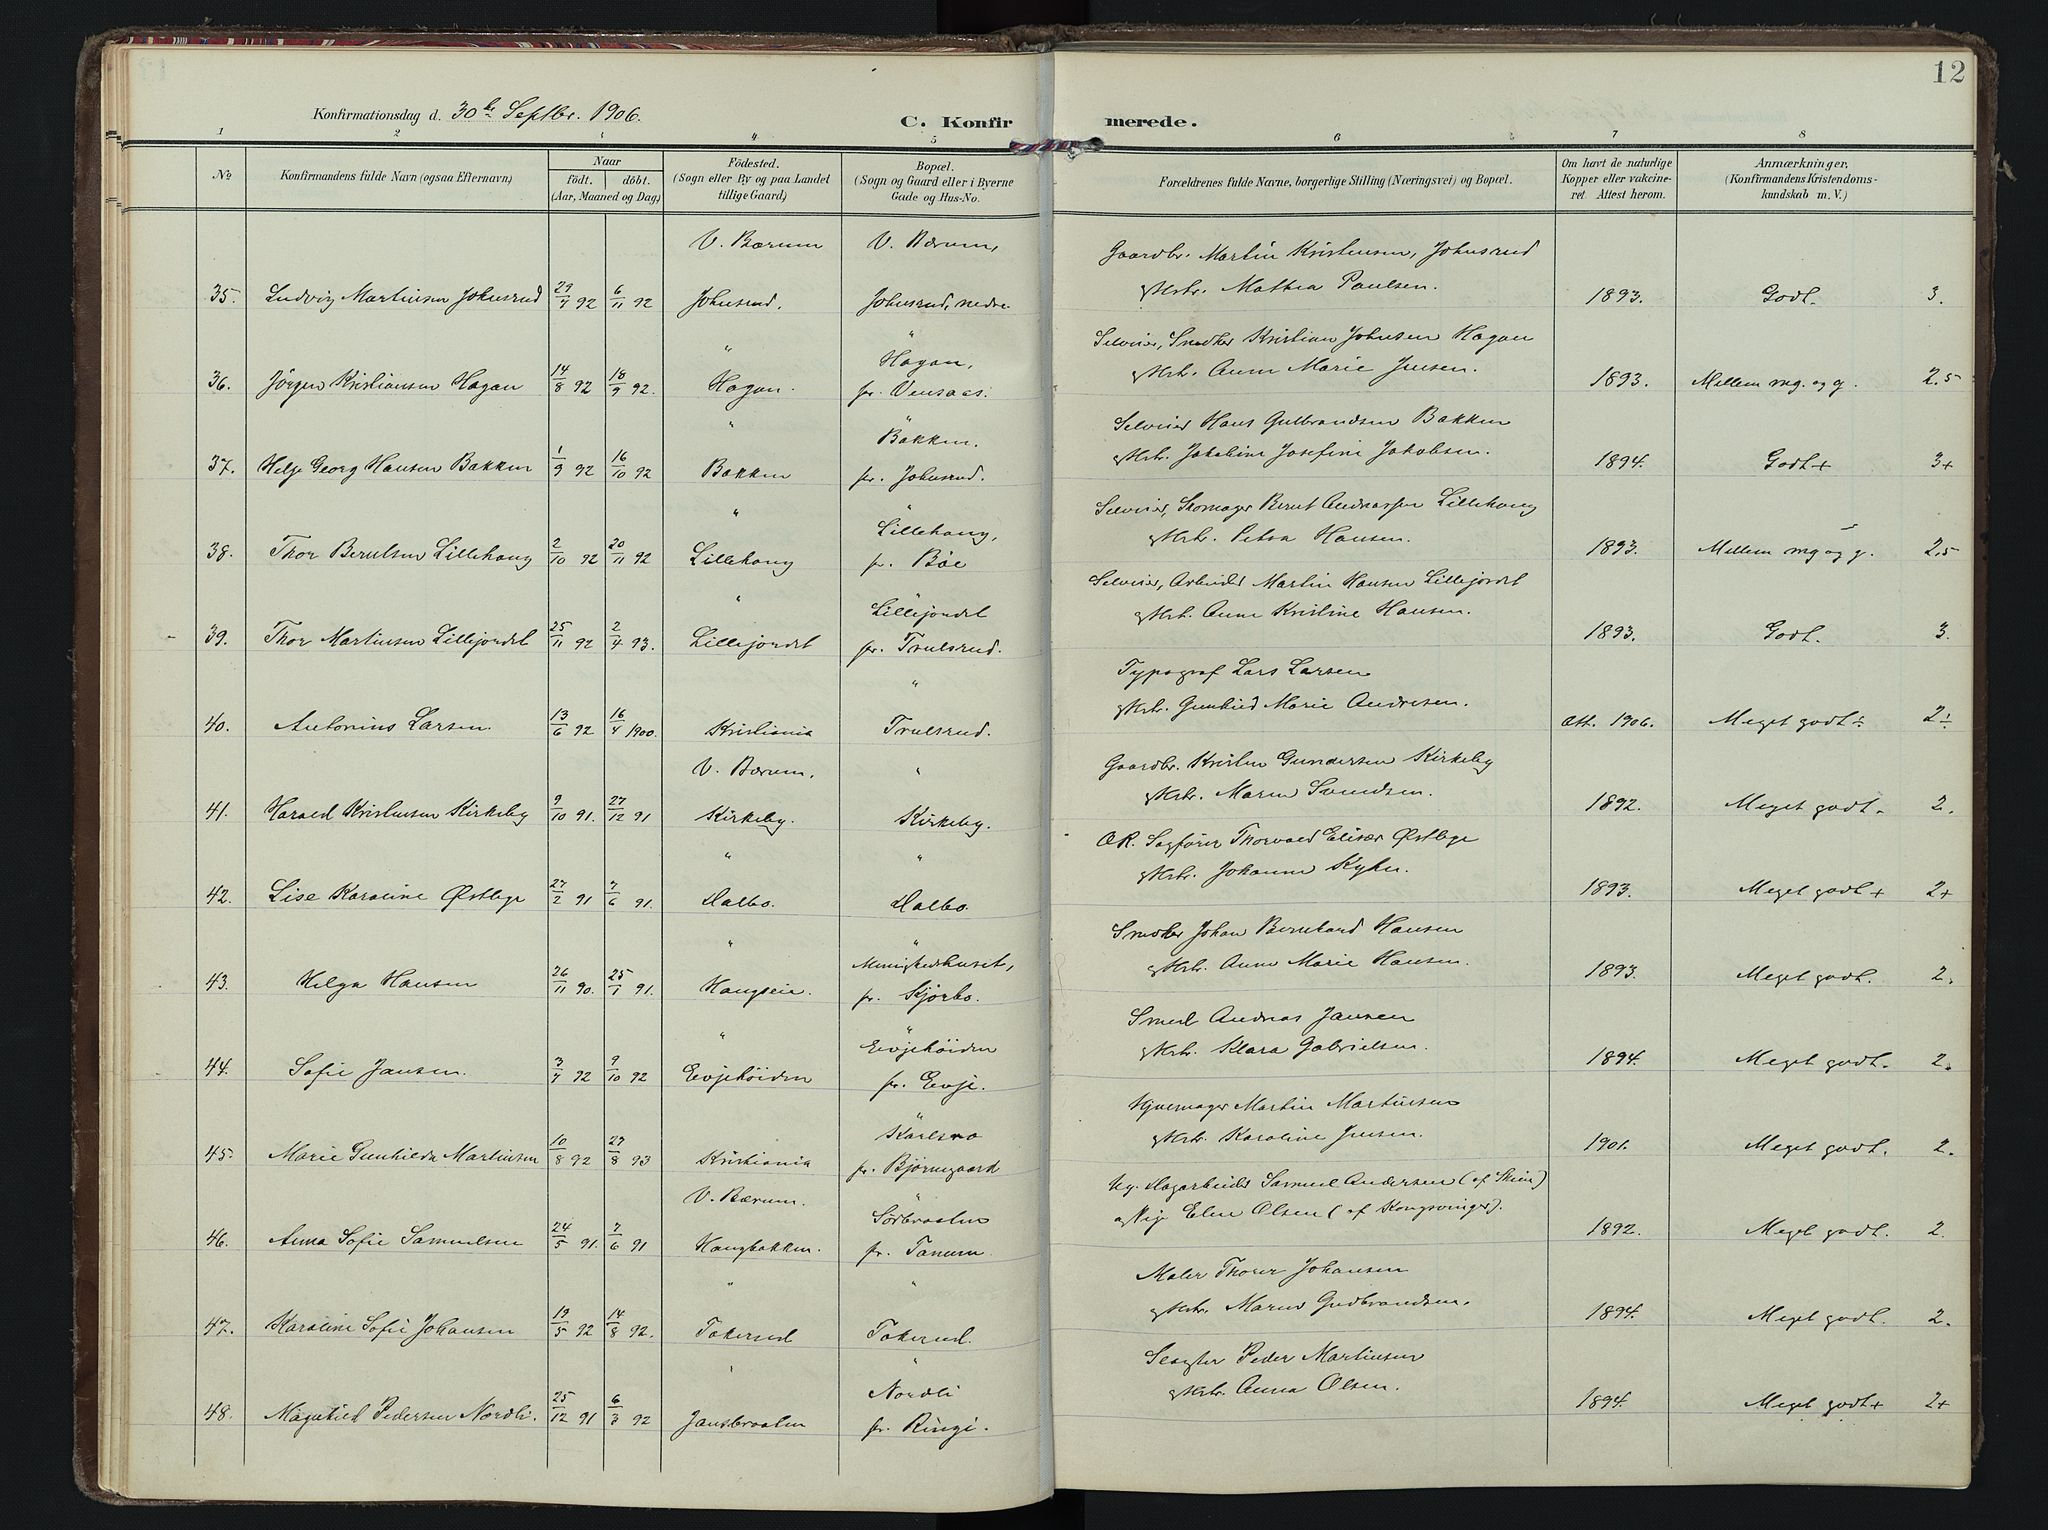 12
Konfirmationsdag d. 30te Septbr. 1906.
C. Konfirmerede.
1 2 3 4 5 6 7 8
No
Konfirmandens fulde Navn (ogsaa Efternavn)
Naar
födt. döbt.
(Aar, Maaned og Dag)
Födested.
(Sogn eller By og paa Landet
tillige Gaard)
Bopæl.
(Sogn og Gaard eller i Byerne
Gade og Hus-No.
Forældrenes fulde Navne, borgerlige Stilling (Næringsvei) og Bopæl.
Om havt de naturlige
Kopper eller vakcine-
ret. Attest herom.
Anmærkninger.
(Konfirmandens Kristendoms-
kundskab m. V.)
V. Bærum V. Bærum, Gaardbr. Martin Kristensen, Johnsrud
35. Ludvig Martinsen Johnsrud 29/7 92 6/11 92 Johnsrud. Johnsrud, nedre. og Hstr. Mathea Paulsen. 1893. Godt. 3.
" " Selveier, Snedker Kristian Johnsen Hagan
36. Jörgen Kristiansen Hagan 14/8 92 18/9 92. Hagan. Hagan, pr. Vensaas. og Hstr. Anne Marie Jensen. 1893. Mellem mg. og g. 2,5
" " Selveier Hans Gulbrandsen Bakken
37. Helge Georg Hansen Bakken 1/9 92 16/10 92 Bakken Bakken. pr. Johnsrud. og Hstr. Jakobine Josefine Jakobsen. 1894. Godt+ 3+
" " Selveier, Skomager Bernt Andreassen Lillehaug
38. Thor Berntsen Lillehaug 2/10 92 20/11 92 Lillehaug Lillehaug, pr. Böe og Hstr. Petra Hansen. 1893. Mellem mg og g. 2,5
" " Selveier, Arbeider Martin Hansen Lillejordet
39. Thor Martinsen Lillejordet 25/11 92 2/4 93. Lillejordet Lillejordet pr. Trulsrud. og Hstr. Anne Kristine Hansen. 1893. Godt. 3.
" Typograf Lars Larsen
40. Antonius Larsen. 13/6 92 16/4 1900. Kristiania Trulsrud. og Hstr. Gunhild Marie Andresen. Att. 1906. Meget godt÷ 2÷
V. Bærum. " Gaardbr. Kristen Gundersen Kirkeby
41. Harald Kristensen Kirkeby 9/10 91. 27/12 91 Kirkeby. Kirkeby. og Hstr. Maren Svendsen. 1892. Meget godt. 2.
" " OR. Sagförer Thorvald Elisæs Østbye
42. Lise Karoline Østbye 27/2 91 7/6 91. Dalbo. Dalbo. og Hstr. Johanne Kyhn. 1893. Meget godt+ 2+
" " Snedker Johan Bernhard Hansen
43. Helga Hansen 26/11 90. 25/1 91. Haugseie. Menighedshuset, pr. Kjörbo. og Hstr. Anne Marie Hansen. 1893. Meget godt. 2.
" " Smed Andreas Jansen
44. Sofie Jansen. 3/7 92 9/10 92 Eevjehöiden Eevjehöiden pr. Eevje. og Hstr. Klara Gabrielsen. 1894. Meget godt. 2.
" Hjuemager Martin Martinsen
45. Marie Gunhilda Martinsen 10/8 92 27/8 93 Kristiania Karlsro pr. Björnegaard og Hstr. Karoline Jensen. 1901. Meget godt. 2.
V. Bærum. " Ug. Dagarbeider Samuel Andersen (af Skien)
46. Anna Sofie Samuelsen 24/5 91. 7/6 91 Haugbakken. Sörbraaten pr. Tanum. og Pige Eline Olsen (af Kongsvinger). 1892. Meget godt. 2.
" " Maler Thorer Johansen
47. Karoline Sofie Johansen 19/5 92 14/8 92. Tokerud Tokerud. og Hstr. Maren Gudbrandsen. 1894. Meget godt. 2.
" " Slagter Peder Martinsen
48. Magnhild Pedersen Nordli. 25/12 91 6/3 92 Jansbraaten Nordli pr. Ringi. og Hstr. Anna Olsen. 1894. Meget godt+ 2+